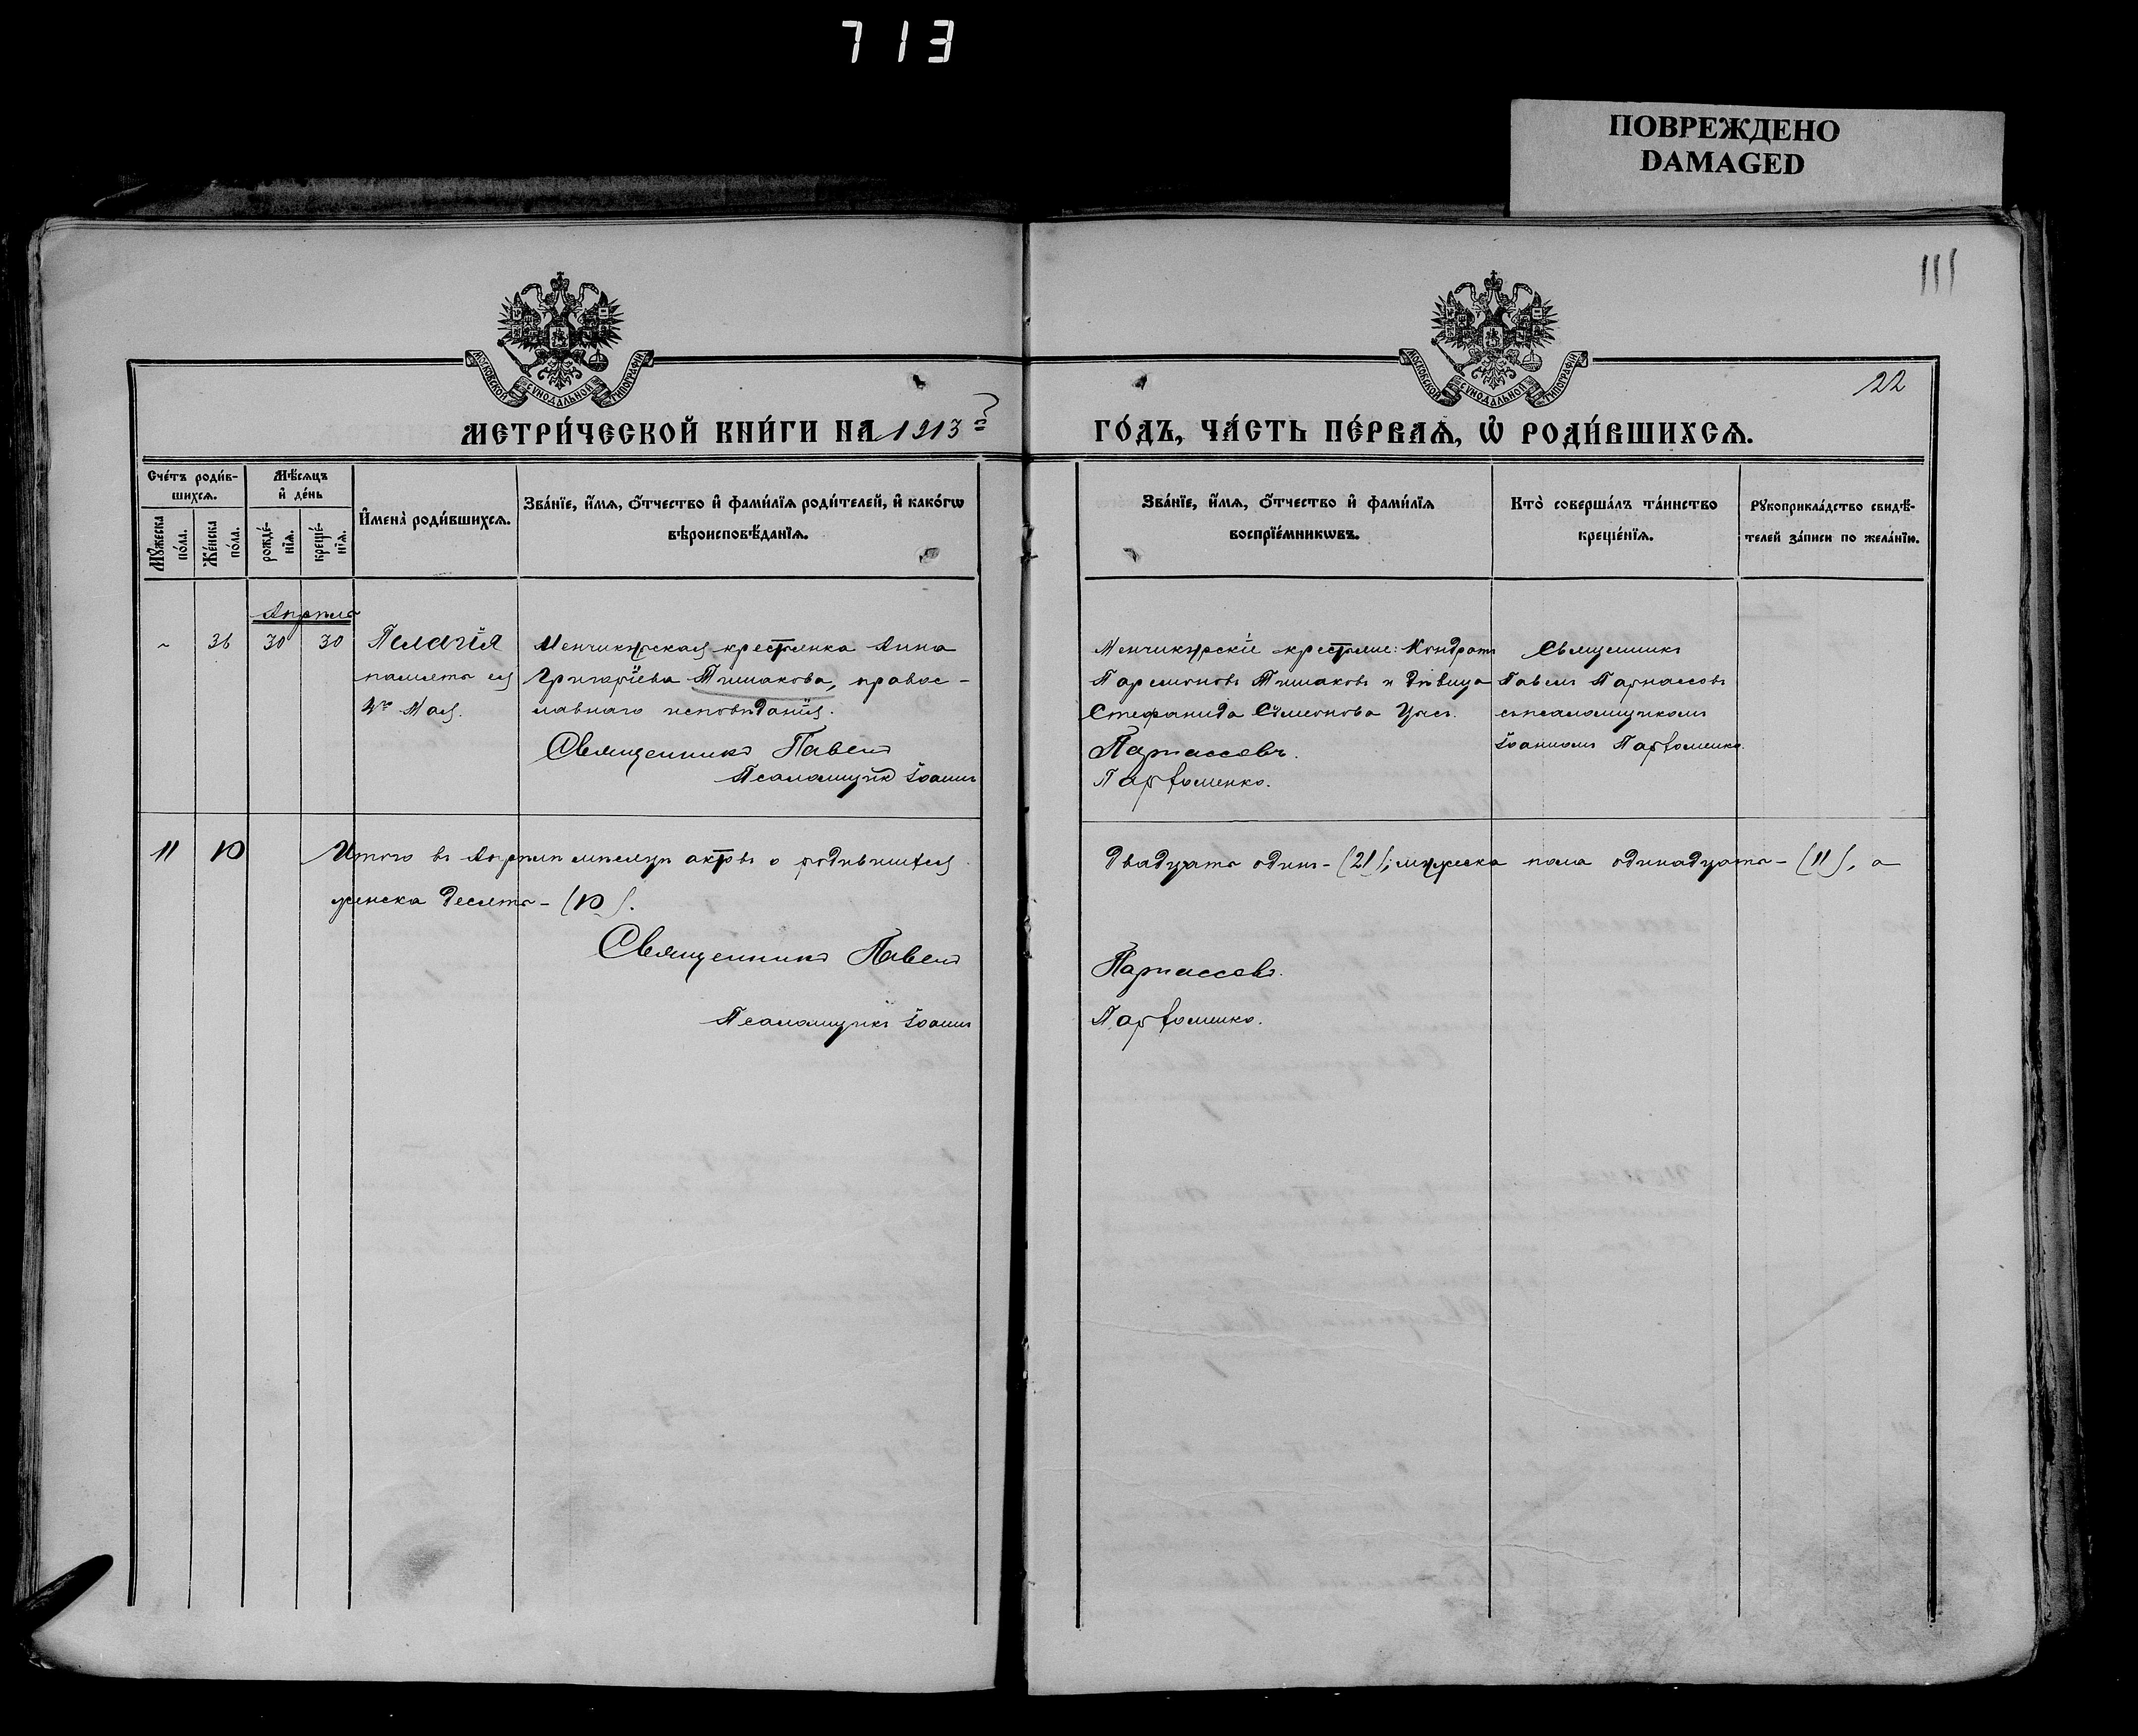 713
ПОВРЕЖДЕНО
DAMAGED
111
МОСКОВСКОЙ СѴНОДАЛЬНОЙ ТИПОГРАФІИ
МОСКОВСКОЙ СѴНОДАЛЬНОЙ ТИПОГРАФІИ
22
МЕТРИ́ЧЕСКОЙ КНИ́ГИ НА 1913й
ГО́ДЪ, ЧА́СТЬ ПЕ́РВАѦ, Ѡ҆ РОДИ́ВШИХСѦ.
Сче́тъ роди́в-
шихсѧ.
Мѣ́сѧцъ
и҆ де́нь
Мꙋ́жеска по́ла.
Же́нска по́ла.
рожде́-
нїѧ.
креще́-
нїѧ.
И҆мена̀ роди́вшихсѧ.
Зва́нїе, и҆́мѧ, ѻ҆́тчество и҆ фами́лїѧ роди́телей, и҆ како́гѡ
вѣроисповѣ́данїѧ.
Зва́нїе, и҆́мѧ, ѻ҆́тчество и҆ фами́лїѧ
воспрїе́мникѡвъ.
Кто̀ соверша́лъ та́инство
креще́нїѧ.
Рꙋкоприкла́дство свидѣ́-
телей за́писи по жела́нїю.
Апрѣль
36 30 30 Пелагія
память ея
4го Мая.
Менчикурская крестьянка Анна
Григоріева Тимакова, правос-
лавнаго исповѣданія.
Священникъ Павелъ
Псаломщикъ Іоаннъ
Менчикурскіе крестьяне: Кондратъ
Парѳеновъ Тимаковъ и дѣвица
Стефанида Сѵмеонова
Парнассовъ.
Парфоменко.
Священникъ
Павелъ Парнассовъ
съ псаломщикомъ
Іоанномъ Парфоменко.
11 10 Итого въ Апрѣлѣ мѣсяцѣ актовъ о родившихся
двадцать одинъ - (21); мужеска пола одинадцать - (11), а
женска десять - (10).
Священникъ Павелъ
Парнассовъ.
Псаломщикъ Іоаннъ
Парфоменко.